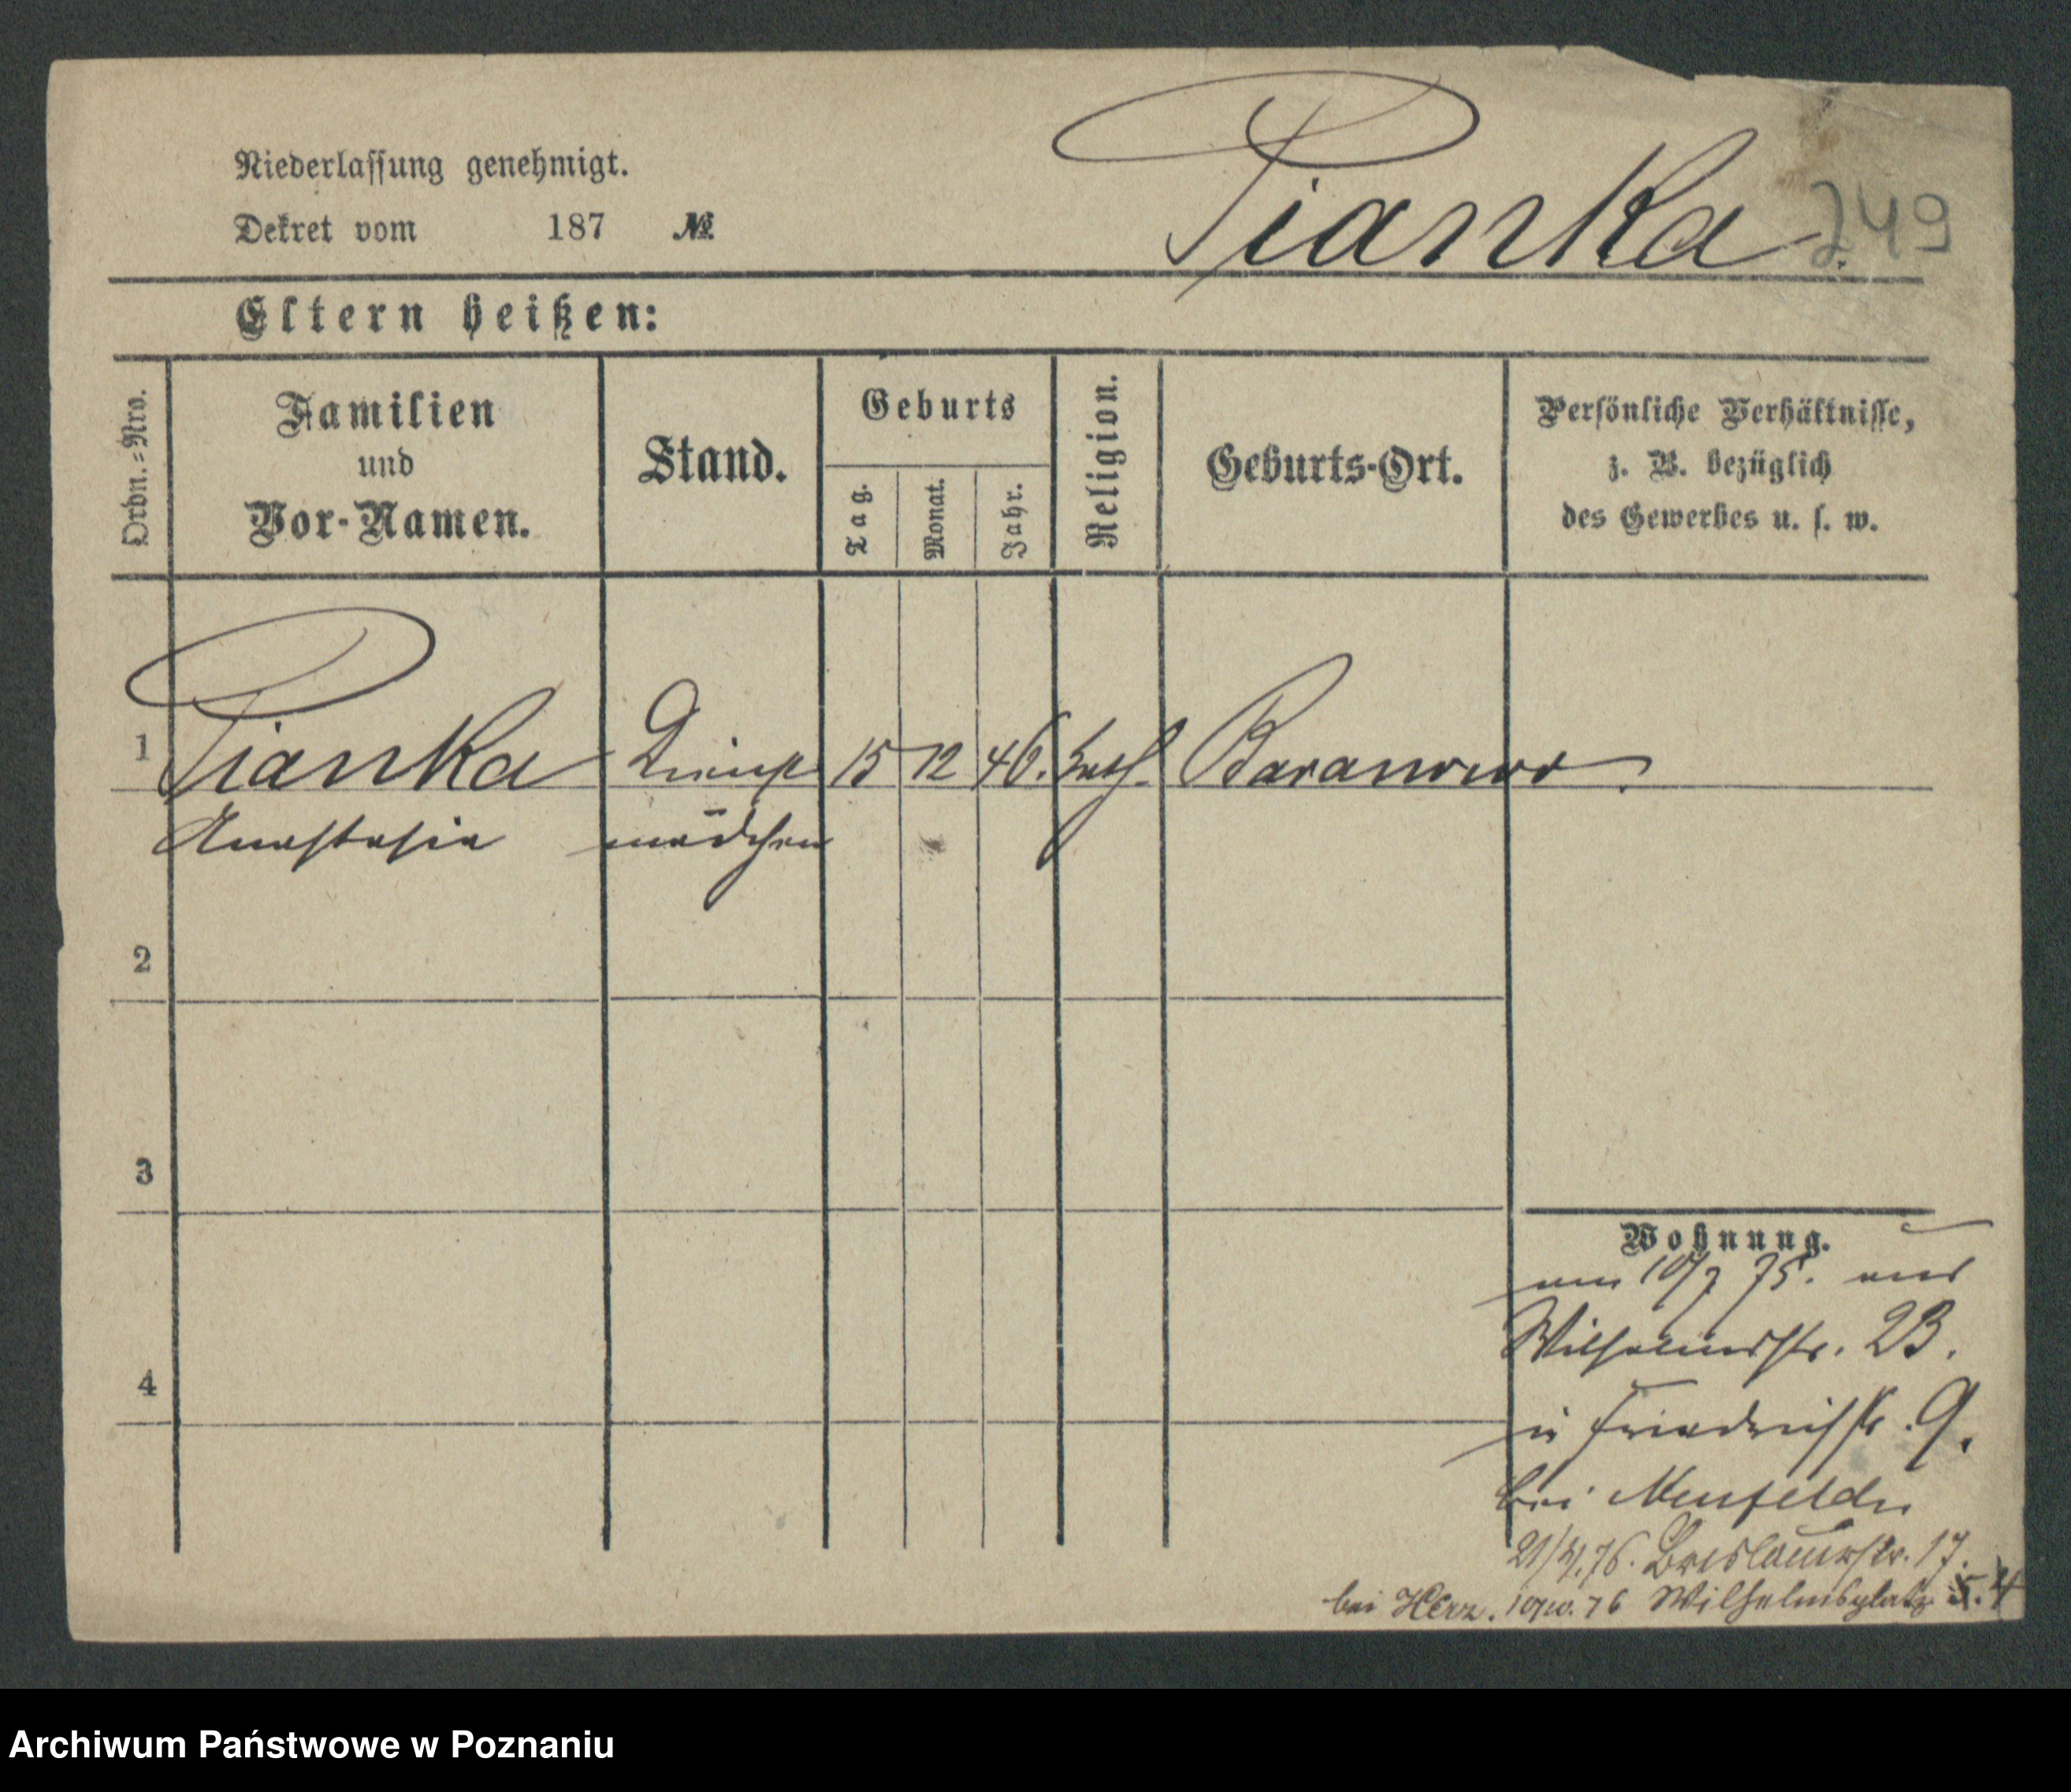 Niederlassung genehmigt.
Dekret vom 187 №
Pianka.
249
Eltern heißen:
Ordn.-Nro.
Familien
und
Vor-Namen.
Stand.
Geburts
Tag.
Monat.
Jahr.
Religion.
Geburts-Ort.
Persönliche Verhältnisse,
z. B. bezüglich
des Gewerbes u. s. w.
1 Pianka Dienst 15 12 46. kath. Baranowo.
Anastasia mädchen
2
3
4
Wohnung.
am 10/7 75. aus
Wilhelmsstr. 23.
in Friedrichstr. 9.
bei Neufelds
21/4.76. Breslauerstr. 17.
bei Herz. 76 Wilhelmsplatz 4
Archiwum Państwowe w Poznaniu